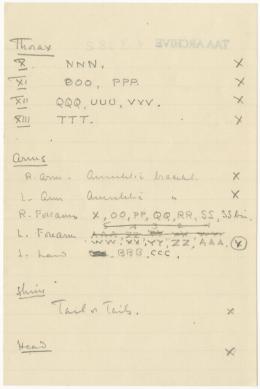 TAA ARCHIVE
Thorax
X. NNN. X
XI OOO, PPP. X
XII QQQ, UUU, VVV. X
XIII TTT. X
Arms
R. Arm. Annulets X
L. Arm Annulets " X
R. Forearm X, OO, PP, QQ, RR, SS, SS bis.
L. Forearm AAA ZZ
WW, XX, YY, ZZ, AAA. X
L. hand BBB, CCC.
Tail or Tails. X
Head X